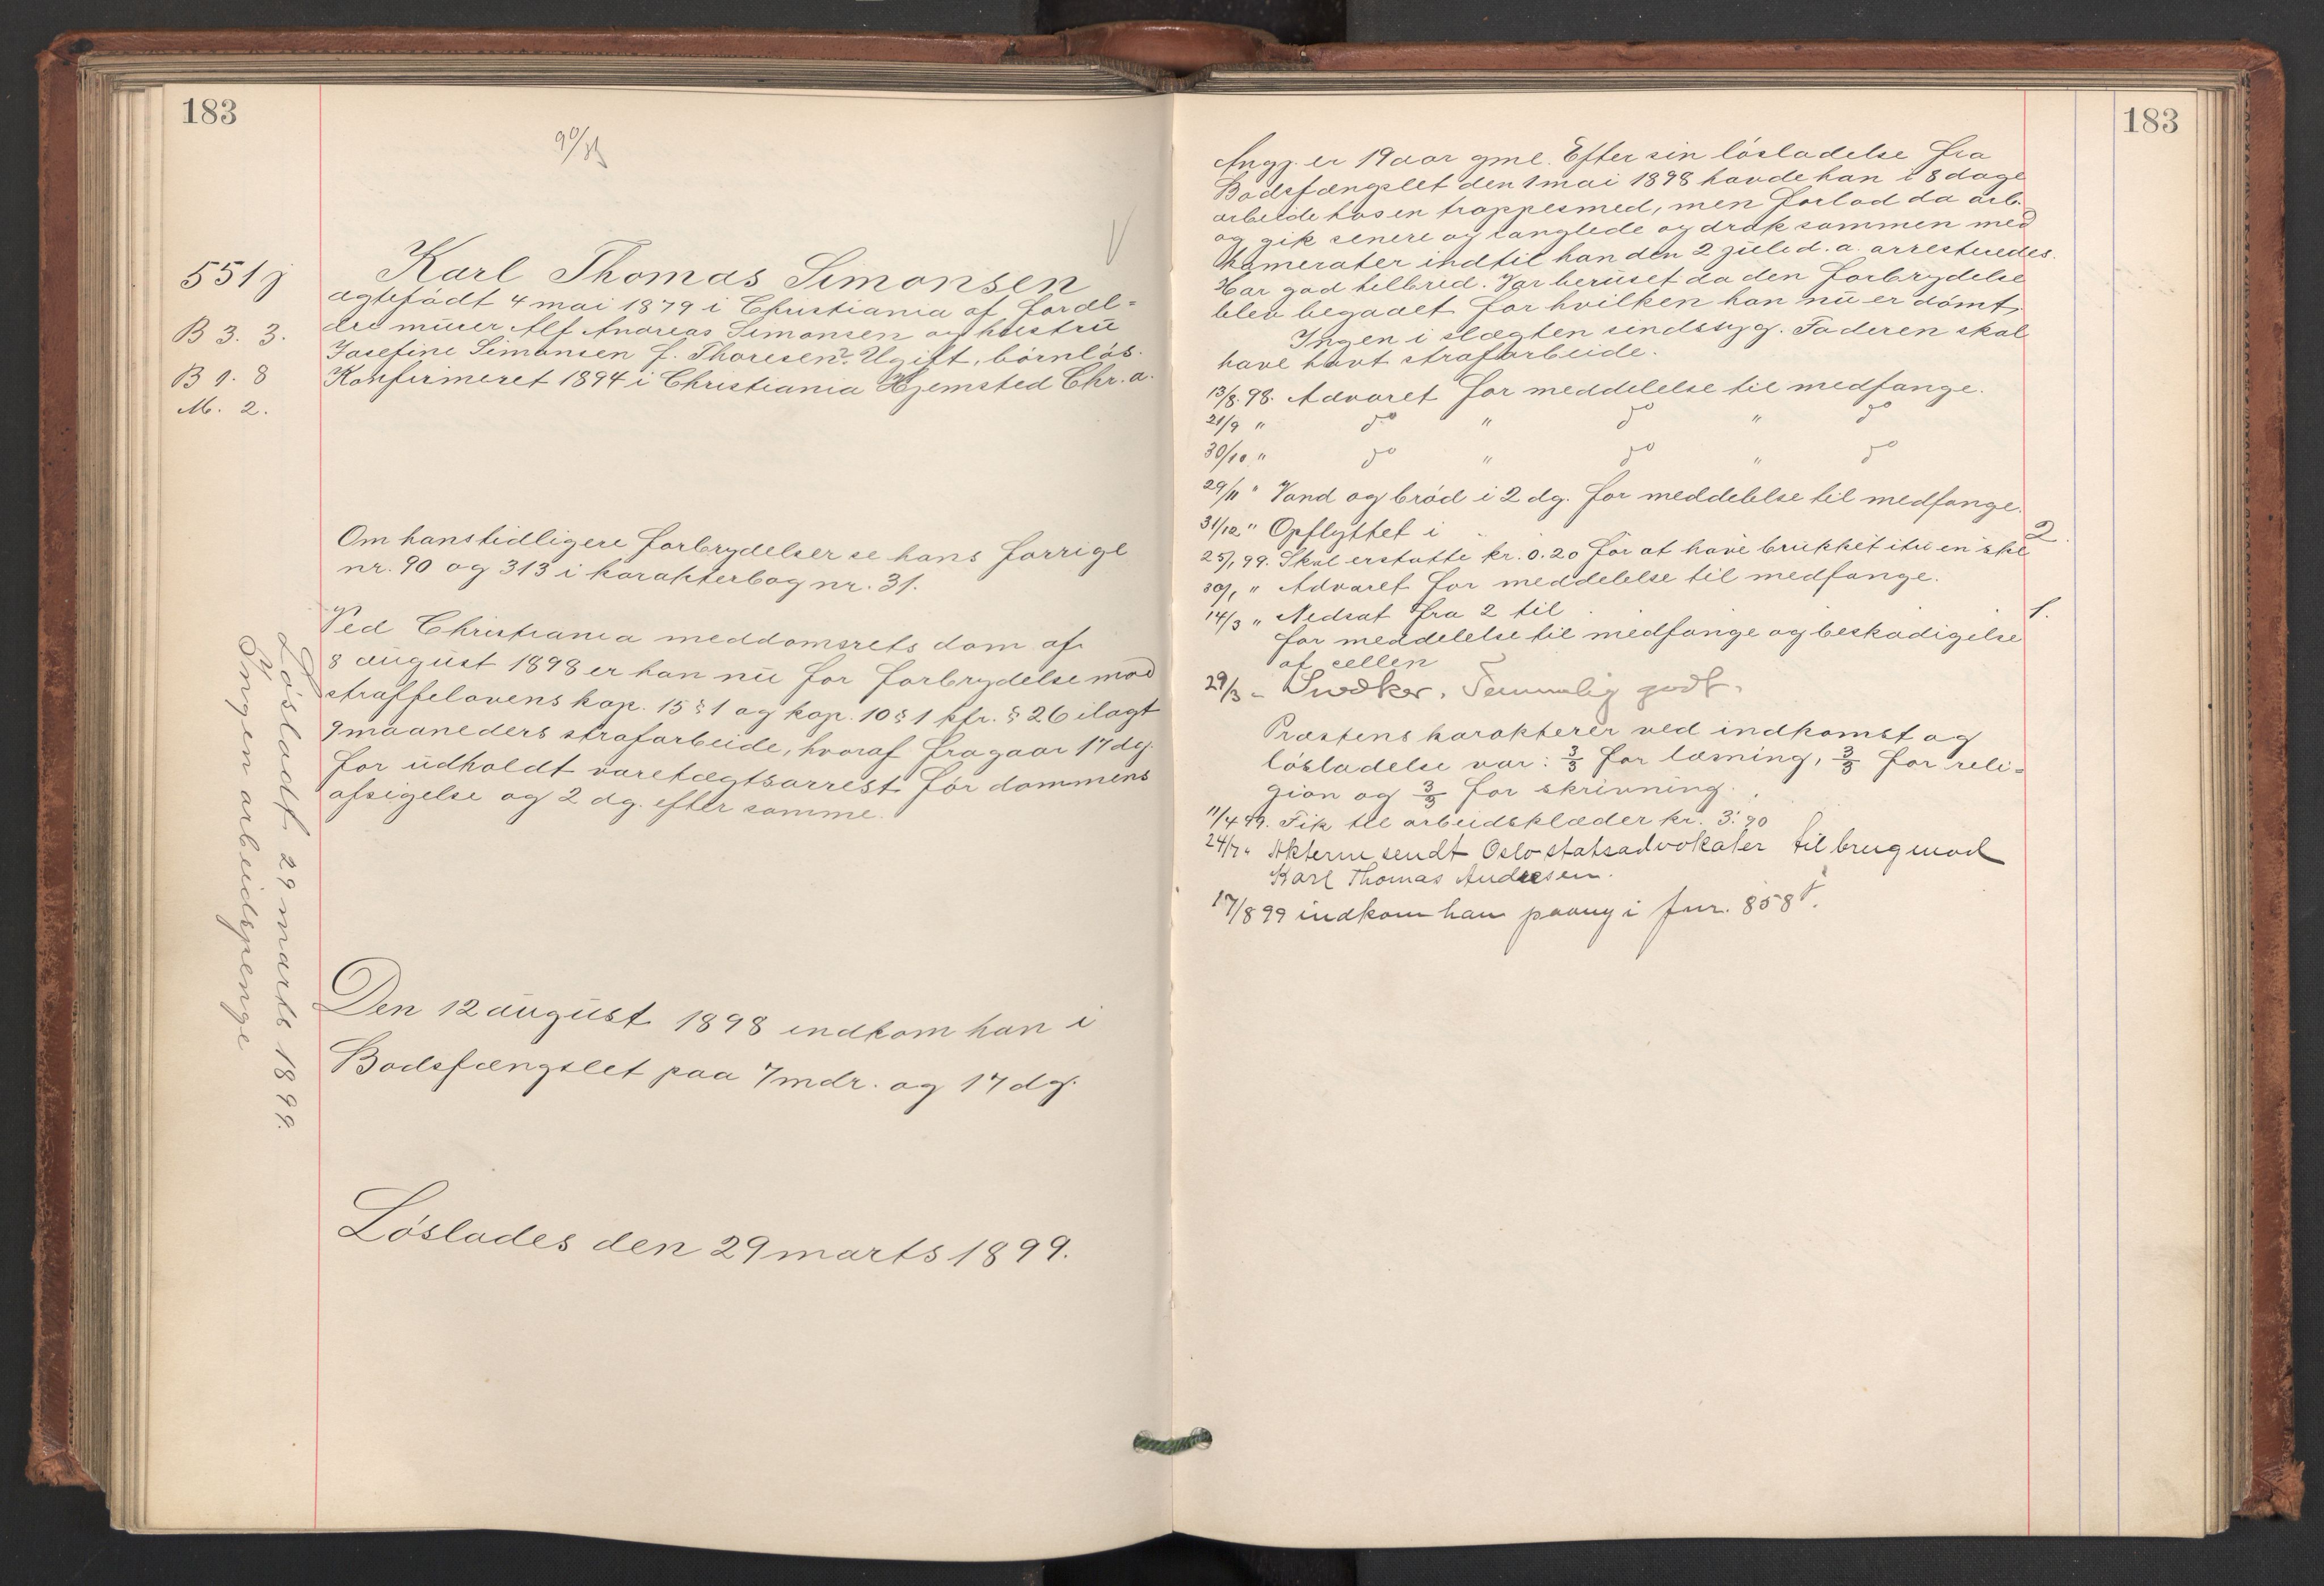 183
90/31
551 j
B 3. 3.
B 1. 8
M. 2.
Karl Thomas Simonsen
ægtefödt 4 mai 1879 i Christiania af foræl-
dre murer Alf Andreas Simonsen og hustru
Josefine Simonsen f. Thoresen. Ugift, börnlös.
Konfirmeret 1894 i Christiania Hjemsted Chr.a.
Om hans tidligere forbrydelser se hans forrige
nr. 90 og 313 i karakterbog nr. 31.
Ved Christiania meddomsrets dom af
8 august 1898 er han nu for forbrydelse mod
straffelovens kap. 15 § 1 og kap. 10 § 1 kfr. § 26 ilagt
9 maaneders strafarbeide, hvoraf fragaar 17 dg.
for udholdt varetægtsarrest för dommens
afsigelse og 2 dg. efter samme.
Den 12 august 1898 indkom han i
Bodsfængslet paa 7 mdr. og 17 dg.
Löslades den 29 marts 1899.
Lösladt 29 marts 1899.
Ingen arbeidspenge
183
Angj. er 19 aar gml. Efter sin lösladelse fra
Bodsfængslet den 1 mai 1898 havde han i 8 dage
arbeide hos en trappesmed, men forlod da arb.
og gik senere og ranglede og drak sammen med
kamerater indtil han den 2 juli d. a. arresteredes.
Har god helbred. Var beruset da den forbrydelse
blev begaaet for hvilken han nu er dömt.
Ingen i slægten sindssyg. Faderen skal
have havt strafarbeide.
13/8.98. Advaret for meddelelse til medfange.
21/9 " do " do " do
30/10 " do " do " do
29/11 " Vand og bröd i 2 dg. for meddelelse til medfange.
31/12 " Opflyttet i 2.
25/1 99. Skal erstatte kr. 0.20 for at have brukket itu en ske
30/1 " Advaret for meddelelse til medfange.
14/3 " Nedsat fra 2 til 1.
for meddelelse til medfange og beskadigelse
af cellen
29/3 - Snedker. Temmelig godt.
Præstens karakterer ved indkomst og
lösladelse var: 3/3 for læsning, 3/3 for reli-
gion og 3/3 for skrivning.
11/4 99. Fik til arbeidsklæder kr. 3.90
24/7 " Akterne sendt Oslo statsadvokater til brug mod
Karl Thomas Andresen.
17/8 99 indkom han paany i fnr. 858 j.